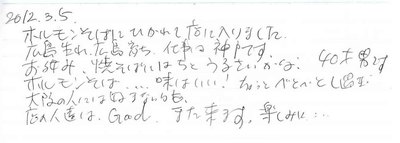 2012.3.5.
ホルモンそばにひかれて店に入りました。
広島生れ、広島育ち、仕事は神戸です。
お好み、焼そばにはちとうるさいかな。 40才男です
ホルモンそばは…味はいい！ちょっとべとべとし過ぎ
大阪の人には
店の人達は、Good. また来ます。楽しみに…